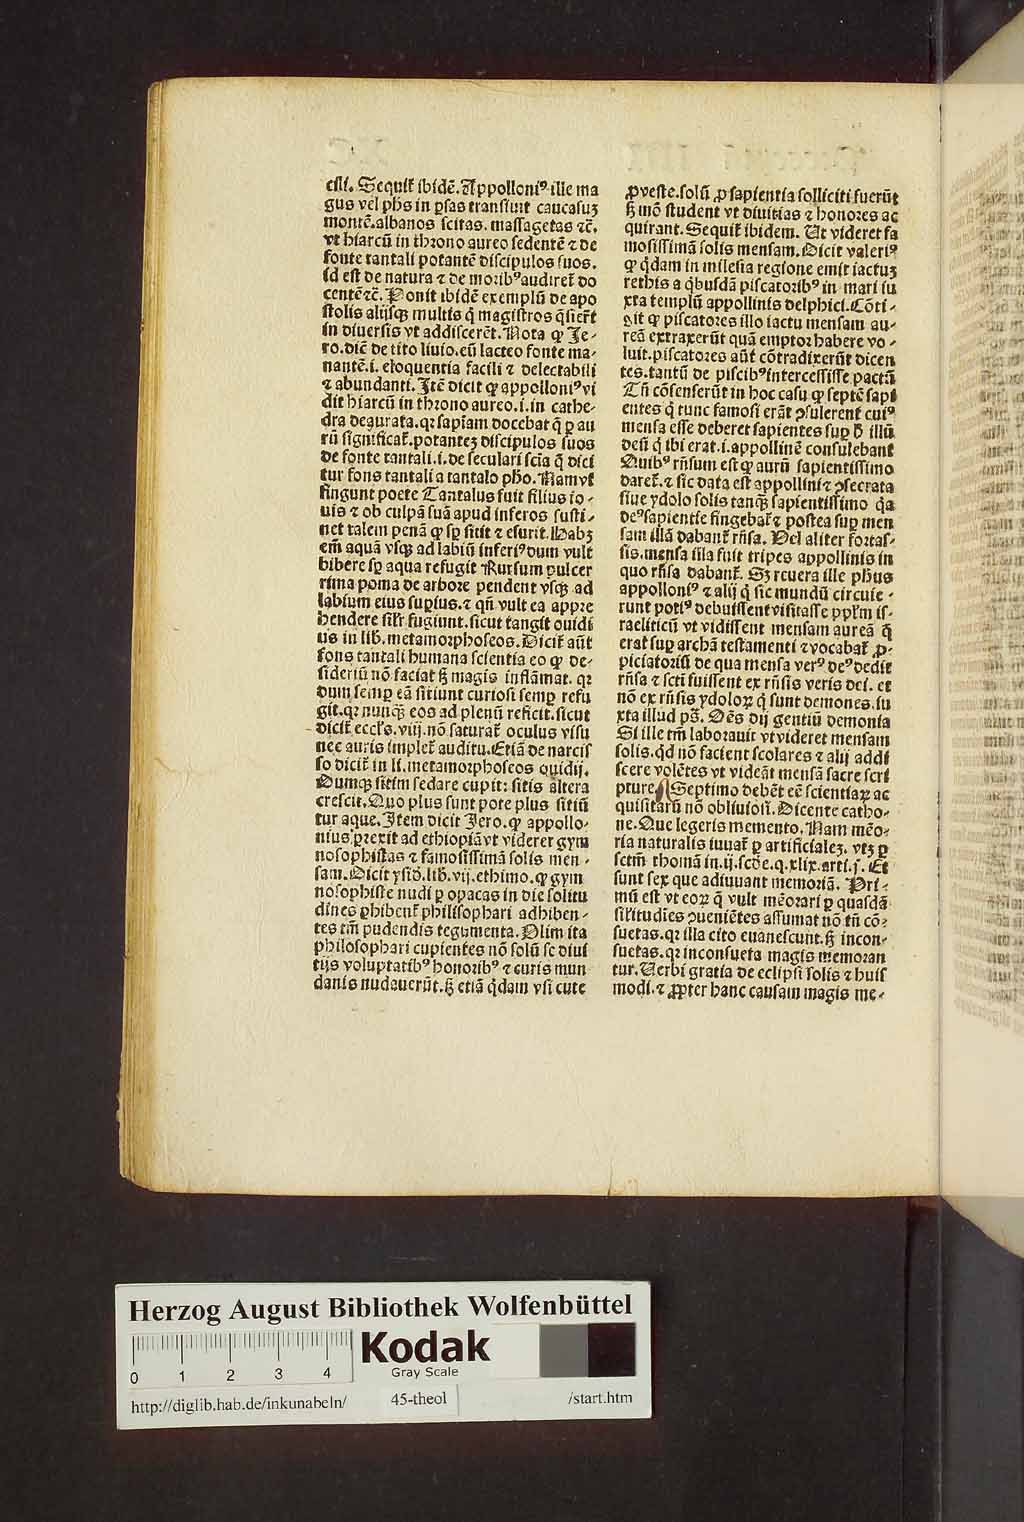 csti. Sequit̃ ibidē. Appolloniꝰ ille ma
gus vel phs in ꝑsas transiuit caucasuꝫ
montē.albanos scitas. massagetas ⁊ẽ.
vt hiarcū in throno aureo sedentē ⁊ de
fonte tantali potantē discipulos suos.
id est de natura ⁊ de moribꝰaudiret̃ do
centē⁊ẽ. Ponit ibidē exemplū de apo
stolis alijsqꝫ multis q̇ magistros q̄sierūt
in diuersis vt addiscerēt. Nota ꝙ Je-
ro.dicē de tito liuio.eū lacteo fonte ma-
nantē.i. eloquentia facili ⁊ delectabili
⁊ abundanti. Itē dicit ꝙ appolloniꝰvi
dit hiarcū in throno aureo.i.in cathe-
dra deaurata.qꝛ sapīam docebat q̄ ꝑ au
rū significat̃.potanteꝫ discipulos suos
de fonte tantali.i.de seculari scīa q̄ dici
tur fons tantali a tantalo pho. Nam vt
fingunt poete Tantalus fuit filius io-
uis ⁊ ob culpā suā apud inferos susti-
net talem penā ꝙ sꝑ sitit ⁊ esurit. Habꝫ
em̄ aquā vsqꝫ ad labiū inferiꝰdum vult
bibere sꝑ aqua refugit Rursum pulcer
rima poma de arbore pendent vsqꝫ ad
labium eius supius.⁊ qn̄ vult ea appre
hendere silr̄ fugiunt.sicut tangit ouidi
us in lib. metamorphoseos. Dicit̃ aūt
fons tantali humana scientia eo ꝙ de-
sideriū nō faciat sꝫ magis inflāmat. qꝛ
dum semꝑ eā sitiunt curiosi semꝑ refu
git.qꝛ nunqꝫ eos ad plenū reficit.sicut
dicit̃ eccls̄.viij.nō saturat̃ oculus visu
nec auris implet̃ auditu. Etiā de narcis
so dicit̃ in li.metamorphoseos ouidij.
Dumqꝫ sitim sedare cupit: sitis altera
crescit. Quo plus sunt pote plus sitiū
tur aque. Item dicit Jero. ꝙ appollo-
nius ꝑrexit ad ethiopiā vt videret gym
nosophistas ⁊ famosissimā solis men-
sam. Dicit ysid̄. lib̄. vij. ethimo. ꝙ gym
nosophiste nudi ꝑ opacas in die solitu
dines ꝑhibent̃ philosophari adhiben-
tes tm̄ pudendis tegumenta. Olim ita
philosophari cupientes nō solū se diui
tijs voluptatibꝰ honoribꝰ ⁊ curis mun
danis nudauerūt.sꝫ etiā q̇dam vsi cute
ꝓ veste.solū ꝓ sapientia solliciti fuerūt
sꝫ mō student vt diuitias ⁊ honores ac
quirant. Sequit̃ ibidem. Ut videret fa
mosissimā solis mensam. Dicit valeriꝰ
ꝙ q̇dam in milesia regione emit iactuꝫ
rethis a q̇busdā piscatoribꝰ in mari iu
xta templū appollinis delphici. Cōti-
git ꝙ piscatores illo iactu mensam au-
reā extraxerūt quā emptor habere vo-
luit.piscatores aūt cōtradixerūt dicen
tes.tantū de piscibꝰintercessisse pactū
Tn̄ cōsenserūt in hoc casu ꝙ septē sapi
entes q̇ tunc famosi erāt ↄsulerent cuiꝰ
mensa esse deberet sapientes sup h̄ illū
deū q̇ ibi erat.i.appollinē consulebant
Quibꝰ rn̄sum est ꝙ aurū sapientissimo
daret̃.⁊ sic data est appollini ⁊ ↄsecrata
siue ydolo solis tanqꝫ sapientissimo q̇a
deꝰsapientie fingebat̃ ⁊ postea sup men
sam illā dabant̃ rn̄sa. Vel aliter fortas-
sis.mensa illa fuit tripes appollinis in
quo rn̄sa dabant̃. Sꝫ reuera ille phus
appolloniꝰ ⁊ alij q̇ sic mundū circuie-
runt potiꝰ debuissent visitasse ppl̄m is-
raeliticū vt vidissent mensam aureā q̄
erat sup archā testamenti ⁊ vocabat̃ ꝓ-
piciatoriū de qua mensa verꝰ deꝰ dedit
rn̄sa ⁊ scti fuissent ex rn̄sis veris dei. et
nō ex rn̄sis ydoloꝝ q̇ sunt demones.iu
xta illud ps̄. Oēs dij gentiū demonia
Si ille tm̄ laborauit vt videret mensam
solis.qd nō facient scolares ⁊ alij addi
scere volētes vt videāt mensā sacre scri
pture. Septimo debēt eē scientiaꝝ ac
quisitarū nō obliuiosi. Dicente catho-
ne. Que legeris memento. Nam mēo-
ria naturalis iuuat̃ ꝑ artificialeꝫ. vtꝫ ꝑ
sctm̄ thomā in.ij.scd̄e.q.xlix.arti.j. Et
sunt sex que adiuuant memoriā. Pri-
mū est vt eoꝝ q̄ vult mēorari ꝑ quasdā
sil̄itudīes ↄueniētes assumat nō tn̄ cō-
suetas.qꝛ illa cito euanescunt.sꝫ incon-
suetas.qꝛ inconsueta magis memoran
tur. Verbi gratia de eclipsi solis ⁊ huiꝰ
modi.⁊ ꝓpter hanc causam magis me-
Herzog August Bibliothek Wolfenbüttel
0 1 2 3 4
Kodak
Gray Scale
http://diglib.hab.de/inkunabeln/ 45-theol /start.htm